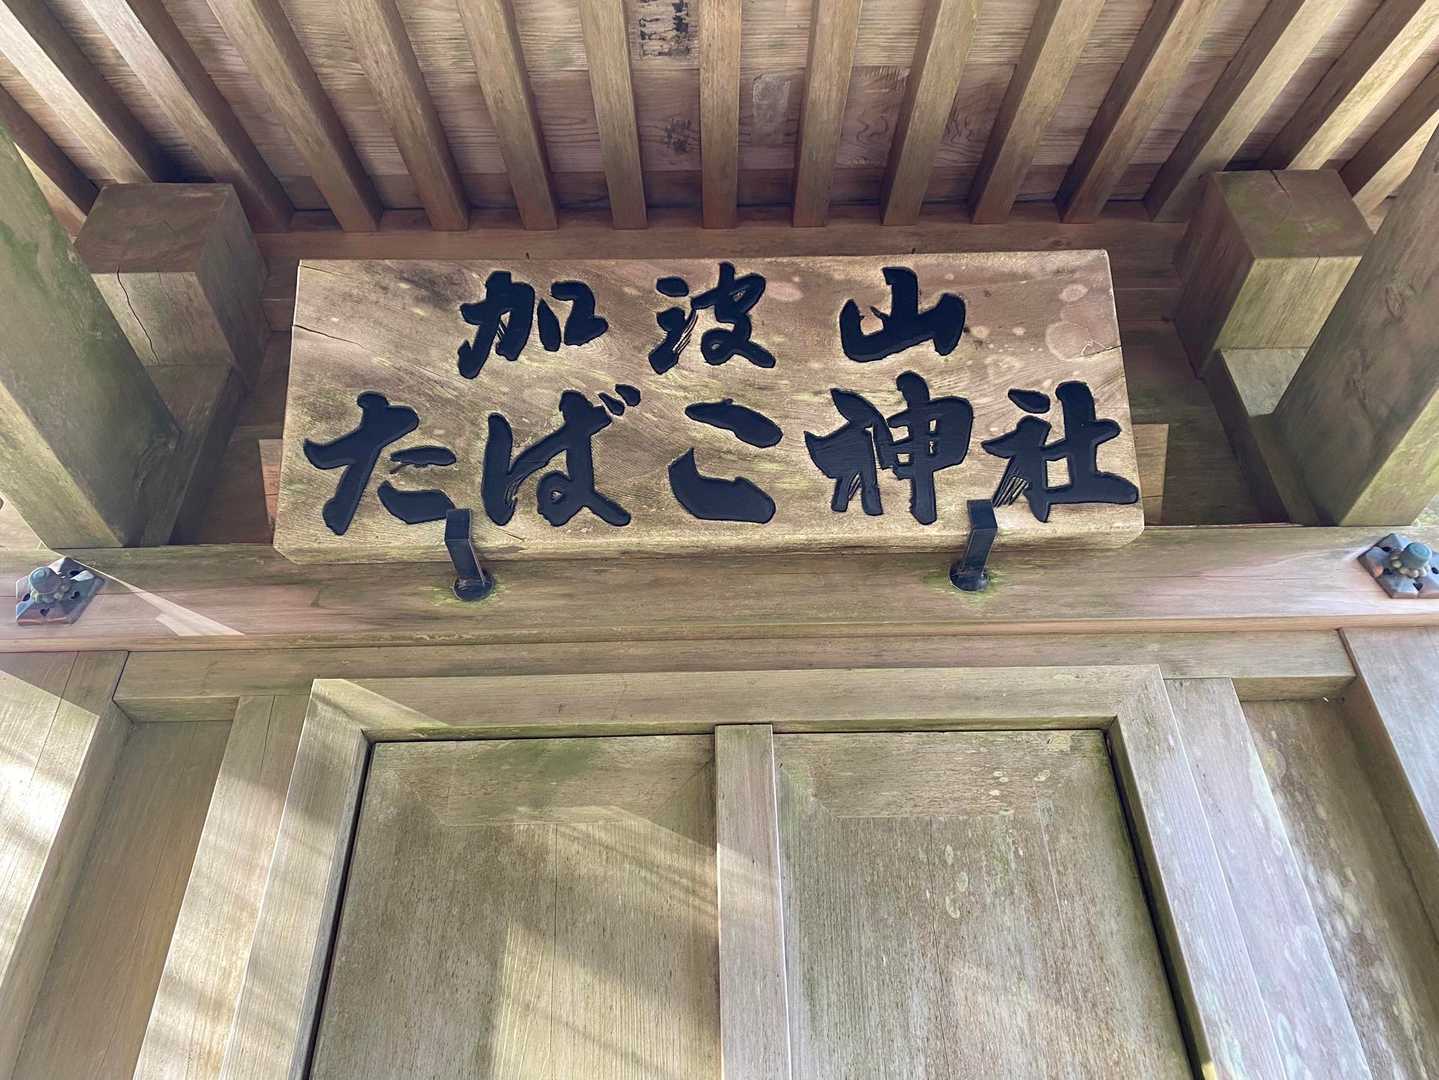 加波山
たばこ神社